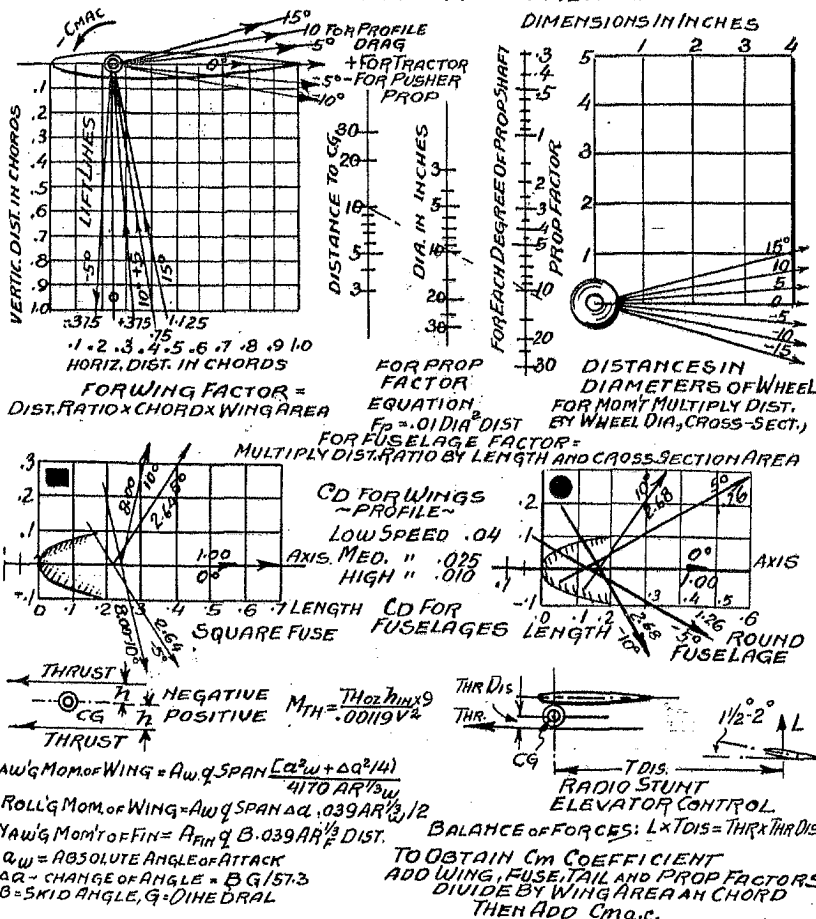 DIMENSIONS IN INCHES
-CMAC
15°
10 FOR PROFILE
5° DRAG
0° + FOR TRACTOR
-5° - FOR PUSHER
-10° PROP
VERTIC. DIST. IN CHORDS
.1
.2
.3
.4
.5
.6
.7
.8
.9
1.0
LIFT LINES
-5°
0
+5
10°
15°
-.375 +.375 1.125
.75
.1 .2 .3 .4 .5 .6 .7 .8 .9 1.0
HORIZ. DIST. IN CHORDS
FOR WING FACTOR =
DIST. RATIO X CHORD X WING AREA
DISTANCE TO CG
30
20
10
5
3
DIA. IN INCHES
3
5
10
20
30
FOR EACH DEGREE OF PROP SHAFT
PROP FACTOR
.3
.4
.5
1
2
3
4
5
10
20
30
FOR PROP
FACTOR
EQUATION
FP = .01 DIA² DIST
1 2 3 4
5
4
3
2
1
15°
10
5
0
-5
-10
-15
DISTANCES IN
DIAMETERS OF WHEEL
FOR MOM'T MULTIPLY DIST.
BY WHEEL DIA, CROSS-SECT.,
FOR FUSELAGE FACTOR =
MULTIPLY DIST. RATIO BY LENGTH AND CROSS SECTION AREA
.3
.2
.1
0
-.1
8.00 10°
2.64 5°
1.00
0°
AXIS
8.00 -10°
2.64 -5°
0 .1 .2 .3 .4 .5 .6 .7 LENGTH
SQUARE FUSE
CD FOR WINGS
~PROFILE~
LOW SPEED .04
MED. " .025
HIGH " .010
CD FOR
FUSELAGES
.2
.1
0
-.1
10°
2.68
5°
1.26
0°
1.00
AXIS
.1 .2 .3 .4 .5 .6
LENGTH
2.68
-10°
1.26
-5°
ROUND
FUSELAGE
THRUST
h NEGATIVE
CG h POSITIVE
THRUST
MTH = THoz hIN x 9 / .00119 V²
THR DIS.
THR.
CG
T DIS.
1½°-2°
L
RADIO STUNT
ELEVATOR CONTROL
AW'G MOM. OF WING = Aw q SPAN [a²w + Δa²/4] / 4170 AR⅓w
ROLL'G MOM. OF WING = Aw q SPAN Δa .039 AR⅓w/2
YAW'G MOM'T OF FIN = AFIN q B .039 AR⅓F DIST.
aw = ABSOLUTE ANGLE OF ATTACK
Δa ~ CHANGE OF ANGLE = B G/57.3
B = SKID ANGLE, G = DIHEDRAL
BALANCE OF FORCES: L x TDIS = THR x THR DIS
TO OBTAIN Cm COEFFICIENT
ADD WING, FUSE, TAIL AND PROP FACTORS
DIVIDE BY WING AREA AN CHORD
THEN ADD Cma.c.